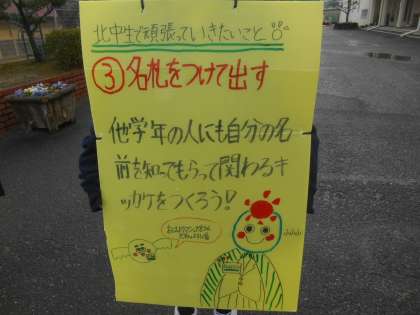 北中生で頑張っていきたいこと
③名札をつけて出す
他学年の人にも自分の名
前を知ってもらって関わるキ
ッカケをつくろう!